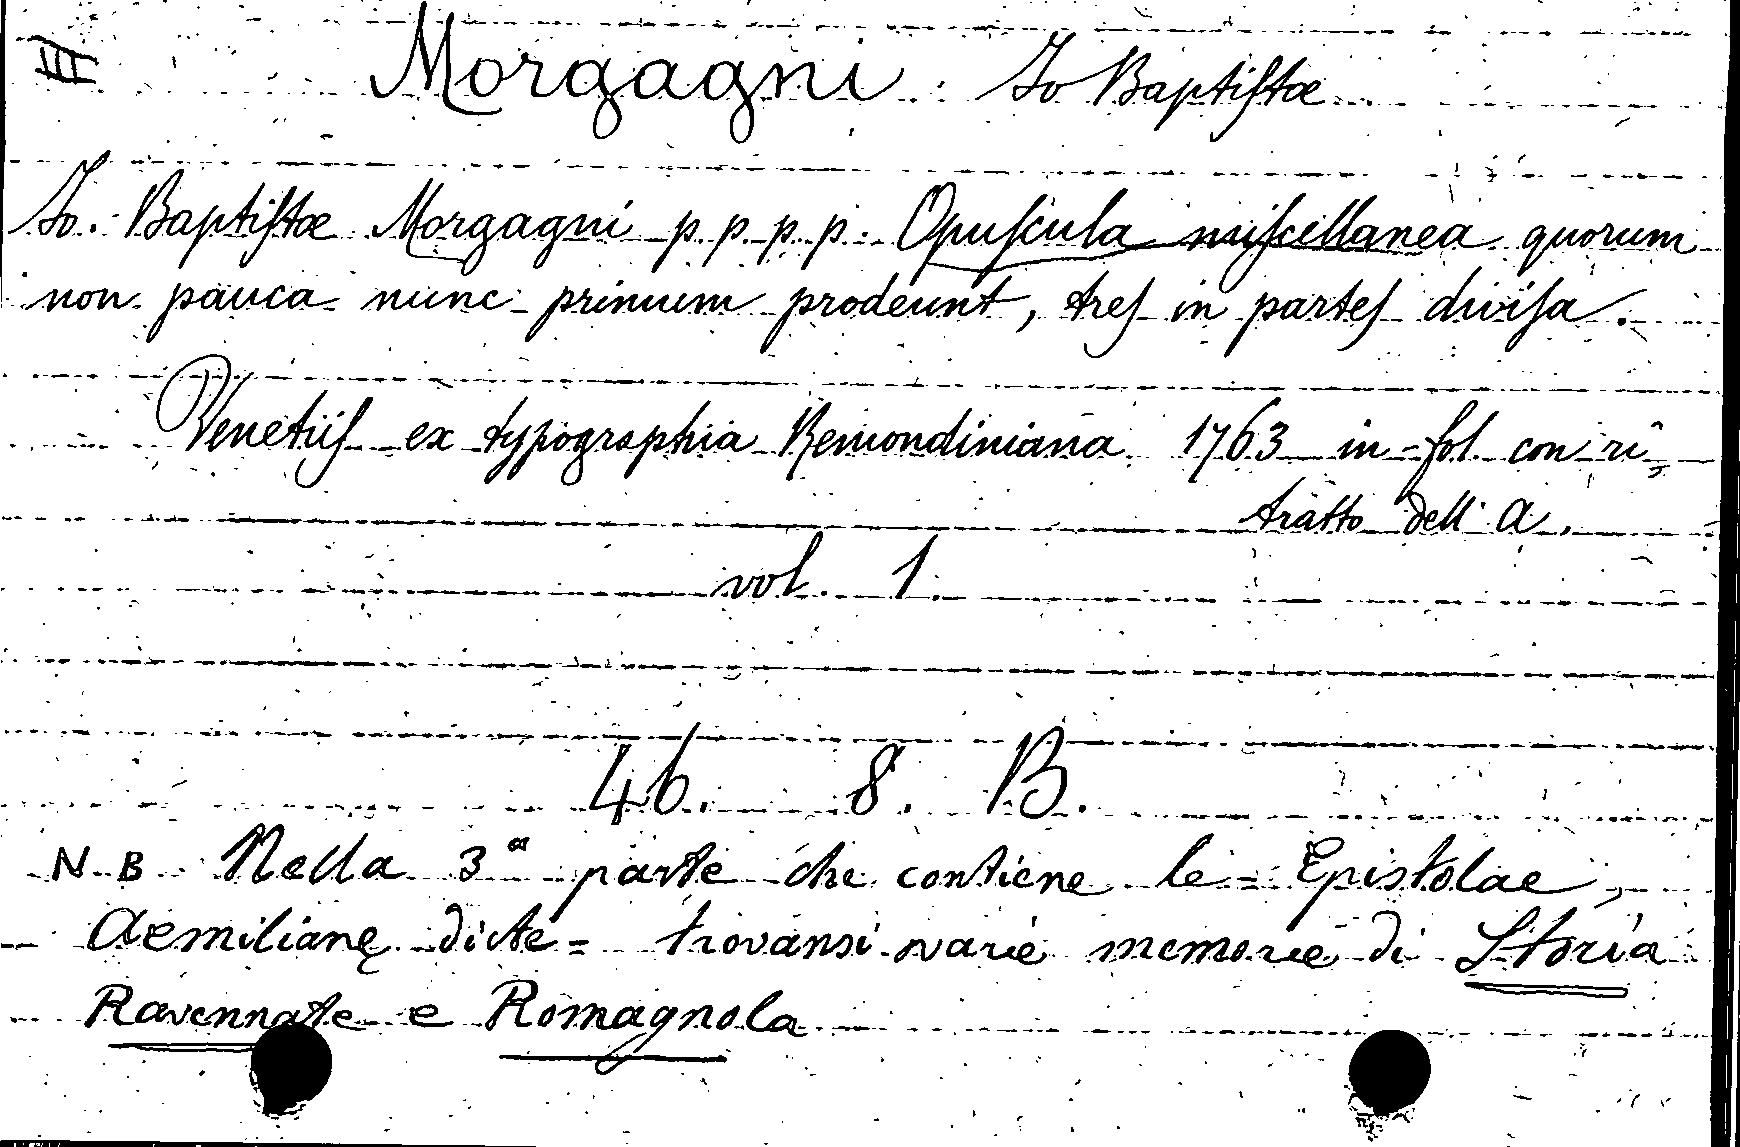 III Morgagni Jo Baptiſtæ
Jo. Baptiſtæ Morgagni p. p. p. p. Opuſcula miſcellanea quorum
non pauca nunc primum prodeunt, treſ in parteſ diviſa.
Venetiiſ ex typographia Remondiniana 1763 in-fol. con ri-
tratto dell' A.
vol. 1.
46. 8. B.
N. B. Nella 3ª parte che contiene le = Epistolae,
Aemilianę dicte = trovansi varie memorie di Storia
Ravennate e Romagnola